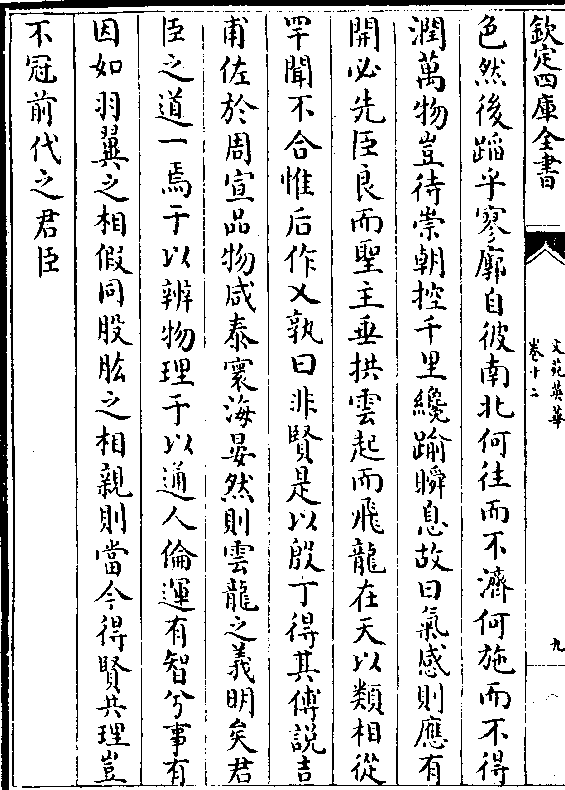 欽定四庫全書
文苑英華
卷十二
九
色然後蹈乎寥廓自彼南北何往而不濟何施而不得
潤萬物豈待崇朝控千里纔踰瞬息故曰氣感則應有
開必先臣良而聖主垂拱雲起而飛龍在天以類相從
罕聞不合惟后作乂孰曰非賢是以殷丁得其傅説吉
甫佐於周宣品物咸泰寰海晏然則雲龍之義明矣君
臣之道一焉于以辨物理于以通人倫運有智兮事有
因如羽翼之相假同股肱之相親則當今得賢共理豈
不冠前代之君臣